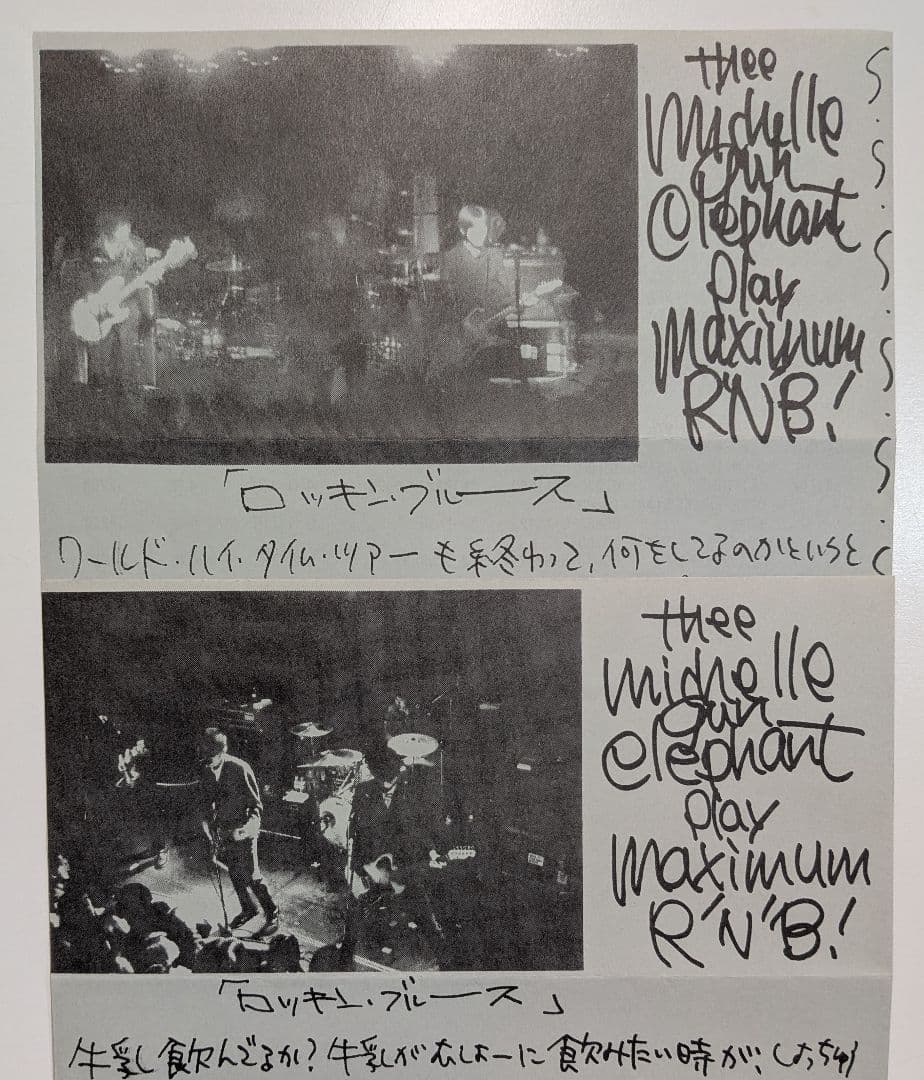 thee
michelle
gun
elephant
play
maximum
R'N'B!
S.S.S.S.S.S
「ロッキン・ブルース」
ワールド・ハイ・タイム・ツアーも終わって、何をしてるのかというと
thee
michelle
gun
elephant
play
maximum
R'N'B!
「ロッキン・ブルース」
牛乳飲んでるか?牛乳がむしょーに飲みたい時が、しょっちゅう